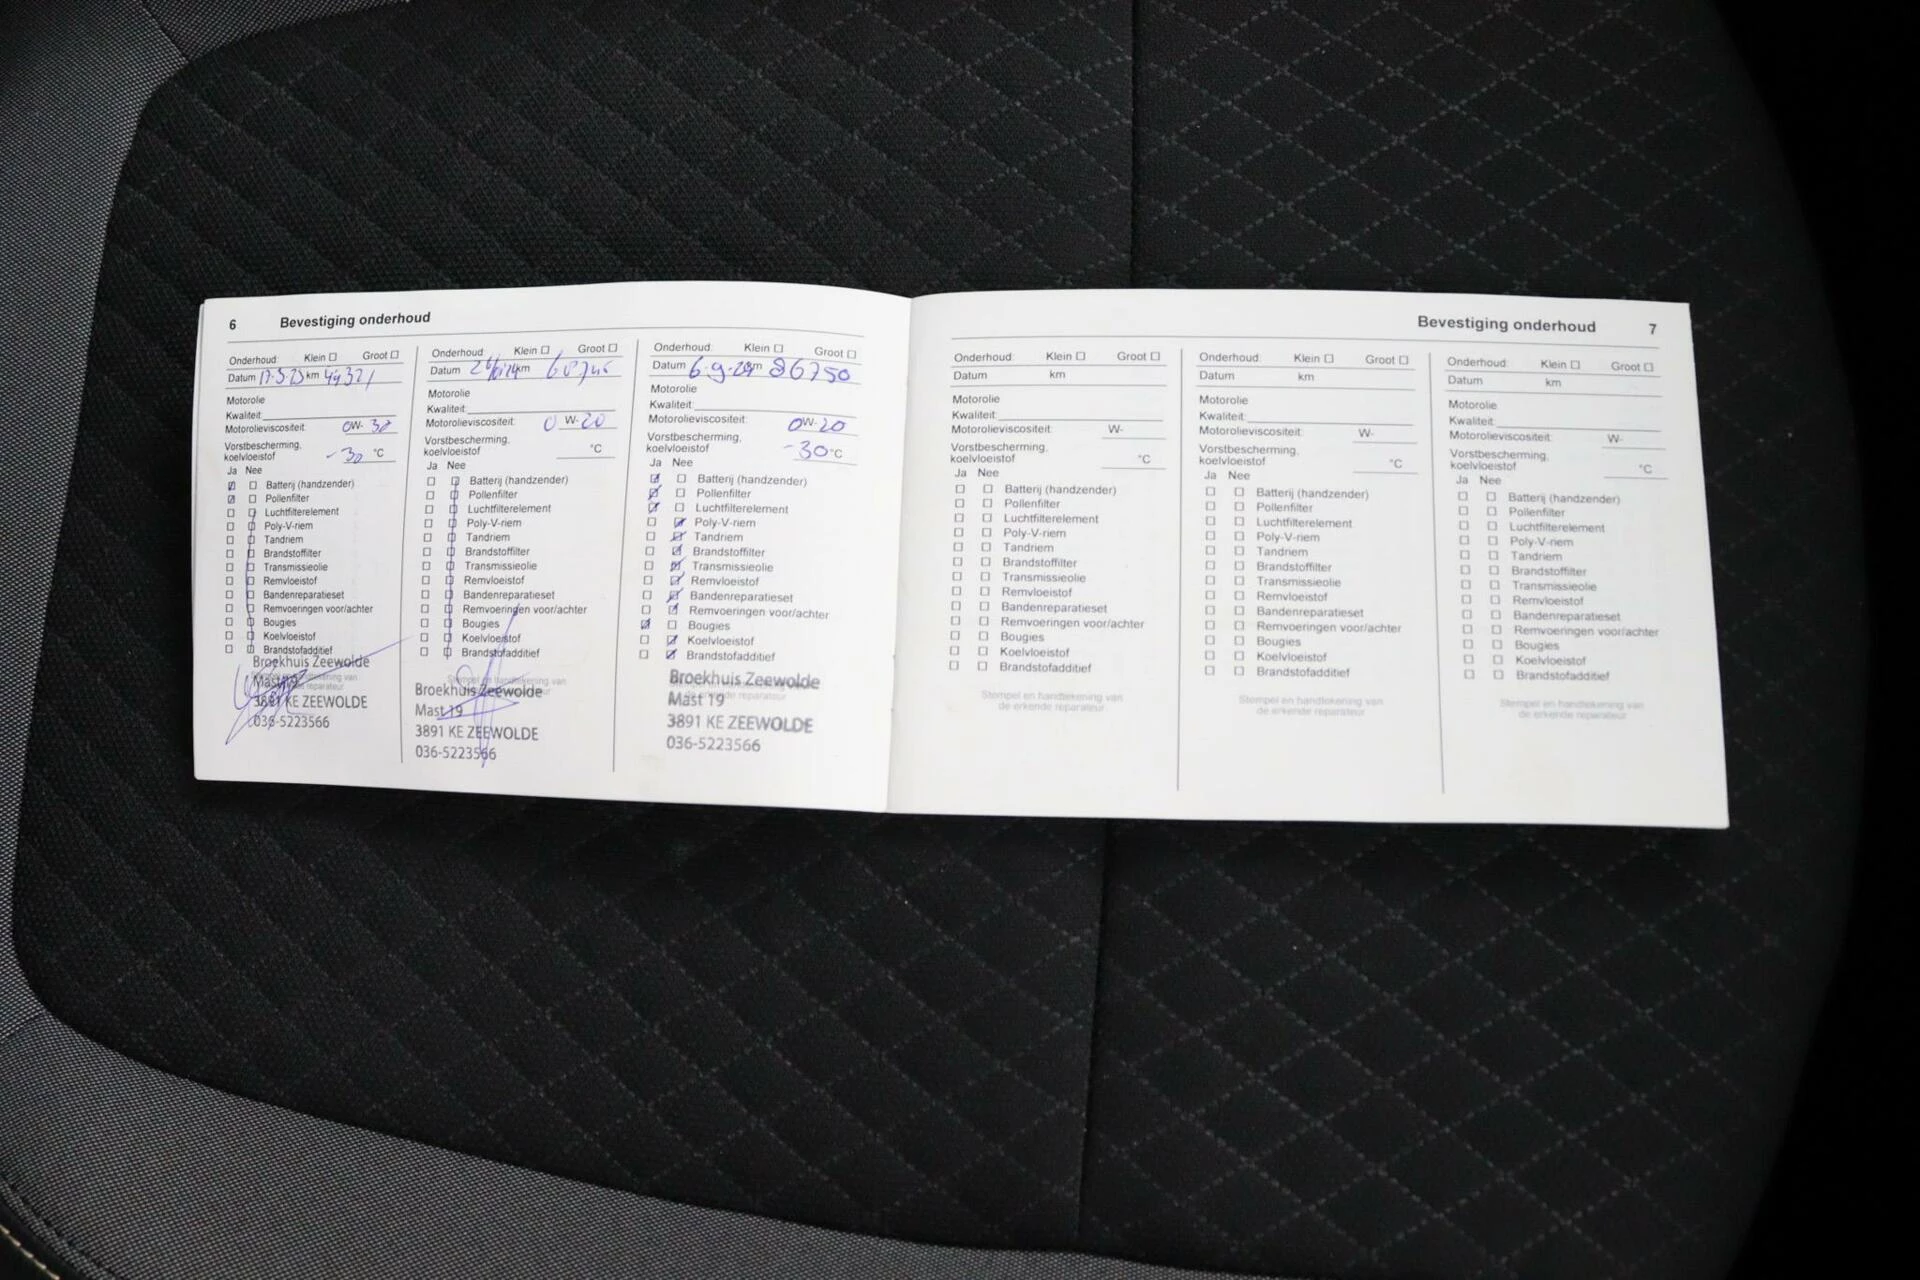 6 Bevestiging onderhoud
Onderhoud: Klein ☐ Groot ☐
Datum 17-5-23 km 44321
Motorolie
Kwaliteit:
Motorolieviscositeit: 0W- 30
Vorstbescherming,
koelvloeistof -30 °C
Ja Nee
Batterij (handzender)
Pollenfilter
Luchtfilterelement
Poly-V-riem
Tandriem
Brandstoffilter
Transmissieolie
Remvloeistof
Bandenreparatieset
Remvoeringen voor/achter
Bougies
Koelvloeistof
Brandstofadditief
Broekhuis Zeewolde
Mast 19
3891 KE ZEEWOLDE
036-5223566
Onderhoud: Klein ☐ Groot ☐
Datum km
Motorolie
Kwaliteit:
Motorolieviscositeit: 0 W- 20
Vorstbescherming,
koelvloeistof °C
Ja Nee
Batterij (handzender)
Pollenfilter
Luchtfilterelement
Poly-V-riem
Tandriem
Brandstoffilter
Transmissieolie
Remvloeistof
Bandenreparatieset
Remvoeringen voor/achter
Bougies
Koelvloeistof
Brandstofadditief
Stempel en handtekening van
Broekhuis Zeewolde
Mast 19
3891 KE ZEEWOLDE
036-5223566
Onderhoud: Klein ☐ Groot ☐
Datum 6-9-24 km 86750
Motorolie
Kwaliteit:
Motorolieviscositeit: 0W- 20
Vorstbescherming,
koelvloeistof -30 °C
Ja Nee
Batterij (handzender)
Pollenfilter
Luchtfilterelement
Poly-V-riem
Tandriem
Brandstoffilter
Transmissieolie
Remvloeistof
Bandenreparatieset
Remvoeringen voor/achter
Bougies
Koelvloeistof
Brandstofadditief
Broekhuis Zeewolde
Mast 19
3891 KE ZEEWOLDE
036-5223566
Bevestiging onderhoud 7
Onderhoud: Klein ☐ Groot ☐
Datum km
Motorolie
Kwaliteit:
Motorolieviscositeit: W-
Vorstbescherming,
koelvloeistof °C
Ja Nee
Batterij (handzender)
Pollenfilter
Luchtfilterelement
Poly-V-riem
Tandriem
Brandstoffilter
Transmissieolie
Remvloeistof
Bandenreparatieset
Remvoeringen voor/achter
Bougies
Koelvloeistof
Brandstofadditief
Stempel en handtekening van
de erkende reparateur
Onderhoud: Klein ☐ Groot ☐
Datum km
Motorolie
Kwaliteit:
Motorolieviscositeit: W-
Vorstbescherming,
koelvloeistof °C
Ja Nee
Batterij (handzender)
Pollenfilter
Luchtfilterelement
Poly-V-riem
Tandriem
Brandstoffilter
Transmissieolie
Remvloeistof
Bandenreparatieset
Remvoeringen voor/achter
Bougies
Koelvloeistof
Brandstofadditief
Stempel en handtekening van
de erkende reparateur
Onderhoud: Klein ☐ Groot ☐
Datum km
Motorolie
Kwaliteit:
Motorolieviscositeit: W-
Vorstbescherming,
koelvloeistof °C
Ja Nee
Batterij (handzender)
Pollenfilter
Luchtfilterelement
Poly-V-riem
Tandriem
Brandstoffilter
Transmissieolie
Remvloeistof
Bandenreparatieset
Remvoeringen voor/achter
Bougies
Koelvloeistof
Brandstofadditief
Stempel en handtekening van
de erkende reparateur